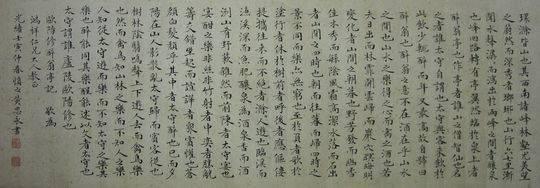 環滁皆山也其西南諸峰林壑尤美望
之蔚然而深秀者瑯琊也山行六七里漸
聞水聲潺潺而瀉出於兩峰之間者釀泉
也峰回路轉有亭翼然臨於泉上者
醉翁亭也作亭者誰山之僧智仙也名
之者誰太守自謂也太守與客來飲於
此飲少輒醉而年又最高故自號曰
醉翁也醉翁之意不在酒在乎山水
之間也山水之樂得之心而寓之酒也若
夫日出而林霏開雲歸而巖穴暝晦明
變化者山間之朝暮也野芳發而幽香
佳木秀而繁陰風霜高潔水落而石出
者山間之四時也朝而往暮而歸四時之
景不同而樂亦無窮也至於負者歌於
塗行者休於樹前者呼後者應傴僂
提攜往來而不絕者滁人遊也臨溪而
漁溪深而魚肥釀泉為酒泉香而酒
洌山肴野蔌雜然而前陳者太守宴也
宴酣之樂非絲非竹射者中奕者勝觥
籌交錯坐起而諠譁者眾賓懽也蒼
顏白髮頹乎其中者太守醉也已而夕
陽在山人影散亂太守歸而賓客從也
樹林陰翳鳴聲上下遊人去而禽鳥樂
也然而禽鳥知山林之樂而不知人之樂
人知從太守遊而樂而不知太守之樂其
樂也醉能同其樂醒能述以文者太守也
太守謂誰廬陵歐陽修也
歐陽修醉翁亭記 敬為
鴻祥仁兄大人教正
光緒壬寅仲春慎之黃思永書